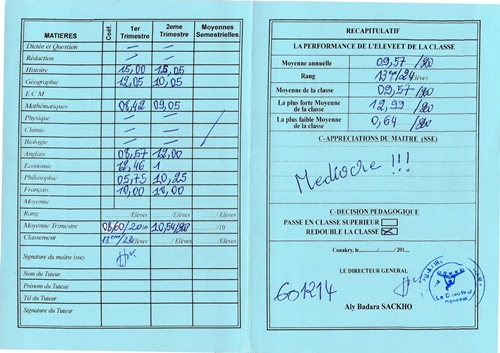 MATIERES Coef. 1er Trimestre 2eme Trimestre Moyennes Semestrielles
Dictée et Question — —
Rédaction — —
Histoire 15,00 15,05
Géographie 12,05 10,05
E C M
Mathématiques 08,42 09,05
Physique — —
Chimie — —
Biologie — —
Anglais 08,57 12,00
Economie 12,46 1
Philosophie 05,75 10,25
Français 10,00 10,00
Moyenne
Rang /Elèves /Elèves /Elèves
Moyenne Trimestre 08,60/20 10,54/20 /10
Classement 13ème/23Elèves /Elèves /Elèves
Signature du maître (sse)
Nom du Tuteur
Prénom du Tuteur
Tél du Tuteur
Signature du Tuteur
RECAPITULATIF
LA PERFORMANCE DE L'ELEVEET DE LA CLASSE
Moyenne annuelle 09,57 /20
Rang 13ème/24Elèves
Moyenne de la classe 09,57 /20
La plus forte Moyenne de la classe 12,99 /20
La plus faible Moyenne de la classe 0,64 /20
C-APPRECIATIONS DU MAITRE (SSE)
Mediocre !!!
C-DECISION PEDAGOGIQUE
PASSE EN CLASSE SUPERIEUR
REDOUBLE LA CLASSE
Conakry, le............/............201...
LE DIRECTEUR GENERAL
601214
Aly Badara SACKHO